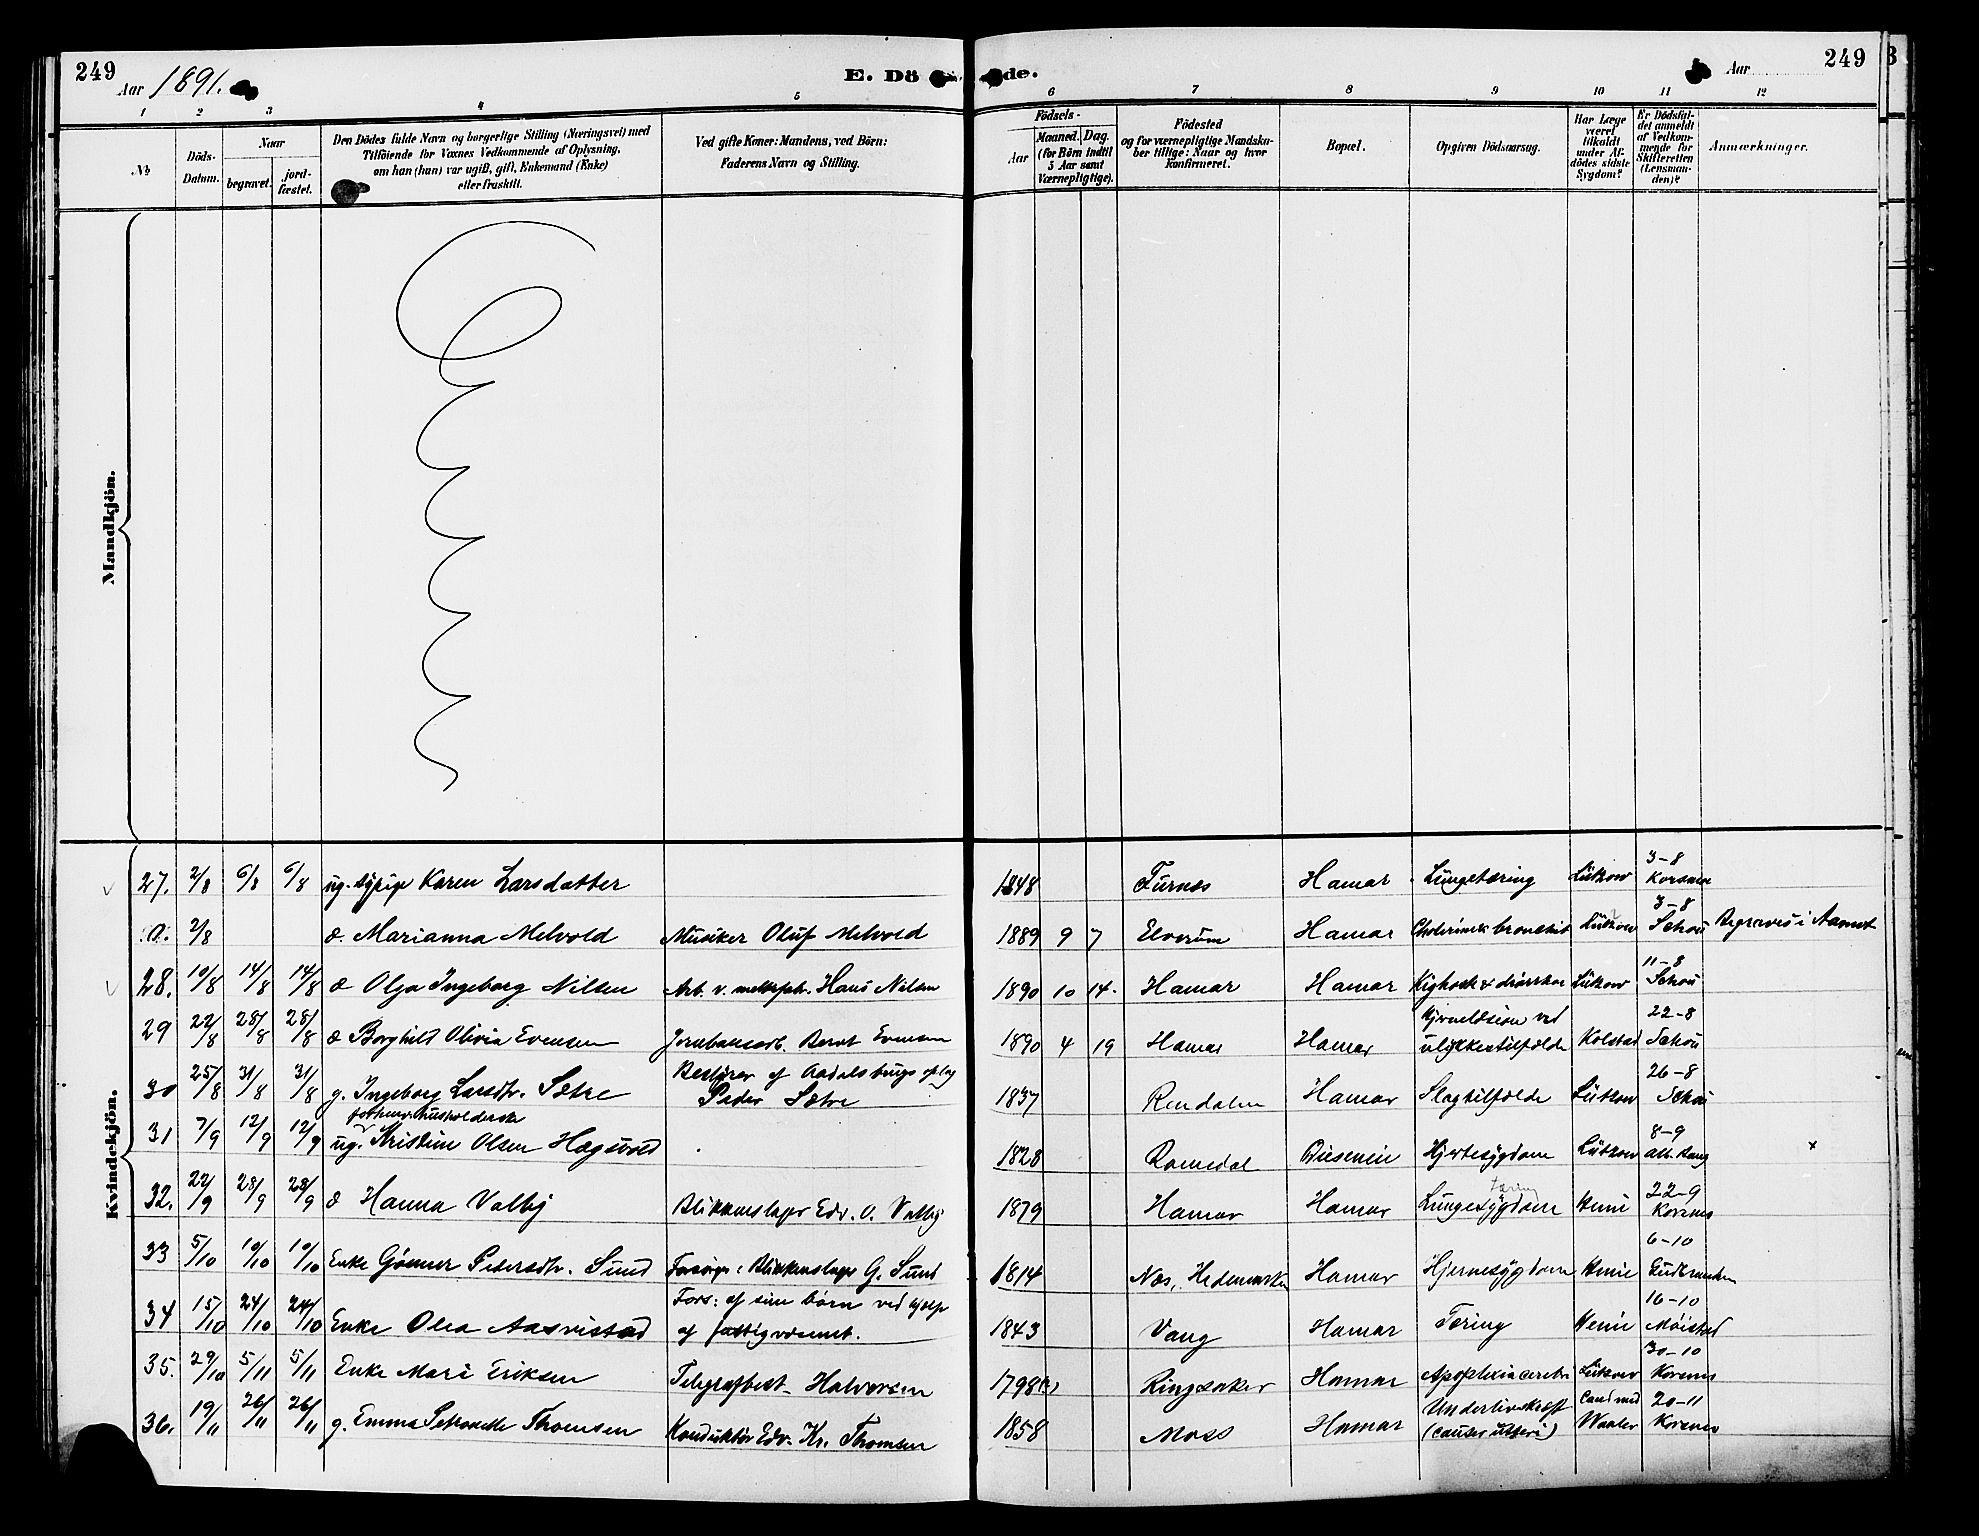 249
Aar 1891.
E. Dö de.
Aar
249
1 2 3 4 5 6 7 8 9 10 11 12
No
Döds-Datum.
Naar
begravet.
jord-fæstet.
Den Dödes fulde Navn og borgerlige Stilling (Næringsvei) med
Tilföiende for Voxnes Vedkommende af Oplysning,
om han (hun) var ugift, gift, Enkemand (Enke)
eller fraskilt.
Ved gifte Koner: Mandens, ved Börn:
Faderens Navn og Stilling.
Födsels-
Aar
Maaned. Dag.
(for Börn indtil
5 Aar samt
Værnepligtige).
Födested
og for værnepligtige Mandska-
ber tillige: Naar og hvor
konfirmeret.
Bopæl.
Opgiven Dödsaarsag.
Har Læge
været
tilkaldt
under Af-
dödes sidste
Sygdom?
Er Dödsfal-
det anmeldt
af Vedkom-
mende for
Skifteretten
(Lensman-
den)?
Anmærkninger.
Mandkjön.
Kvindekjön.
27. 2/8 6/8 6/8 ug. sypige Karen Larsdatter 1848 Furnæs Hamar Lungetæring Lütkow 3-8 Korsmo
a. 2/8 d. Marianna Melvold Musiker Oluf Melvold 1889 9 7 Elverum Hamar Lütkow 3-8 Schou Begraves i Aamot
28. 10/8 14/8 14/8 d Olga Ingeborg Nilsen Arb. v. Hans Nilsen 1890 10 14. Hamar Hamar Kighoste & Lütkow 11-8 Schou
29 22/8 28/8 28/8 d Borghild Olivia Evensen Jernbanearb. Bernt Evensen 1890 4 19 Hamar Hamar ved ulykkestilfælde Kolstad 22-8 Schou
30 25/8 31/8 31/8 g. Ingeborg Larsdtr. Sætre Bestyrer af Aadalsbrugs oplag Peder Sætre 1837 Rendalen Hamar Slagtilfælde Lütkow 26-8 Schou
31 7/9 12/9 12/9 ug. forhenv. husholderske Kristine Olsen Hagsvold 1828 Romedal Hjertesygdom Lütkow 8-9
32. 22/9 28/9 28/9 d Hanna Valby Blikkenslager Edv. O. Valby 1879 Hamar Hamar Lungesygdom tæring Henie 22-9 Korsmo
33 5/10 10/10 10/10 Enke Gönner Pedersdtr. Sund Forsörges: Blikkenslager G. Sund 1814 Næs, Hedemarken Hamar Hjernesygdom Henie 6-10 Gudbrandsen
34 15/10 24/10 24/10 Enke Olea Aasvistad Fors: af sine börn ved hjelp af fattigvæsenet. 1843 Vang Hamar Tæring Henie 16-10 Möistad
35. 29/10 5/11 5/11 Enke Mari Eriksen Telegrafbest. Halvorsen 1798(?) Ringsaker Hamar Apoplexia cerebri Lütkow 30-10 Korsmo
36. 19/11 26/11 26/11 g. Emma Petronelle Thomsen Konduktör Edv. Kr. Thomsen 1858 Moss Hamar Underlivskræft (cancer utheri) Cand med Waaler 20-11 Korsmo